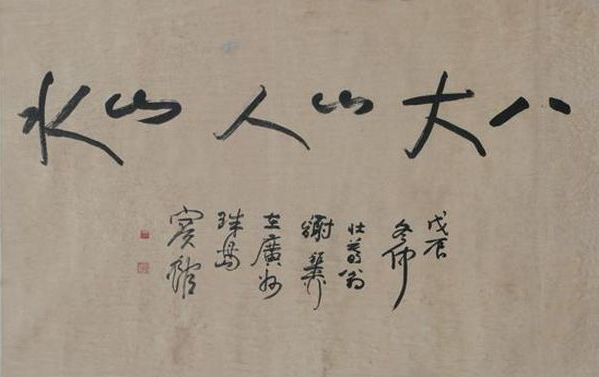 八大山人山水
戊辰
冬仲
壯暮翁
謝稚柳
在廣州
珠島
賓館